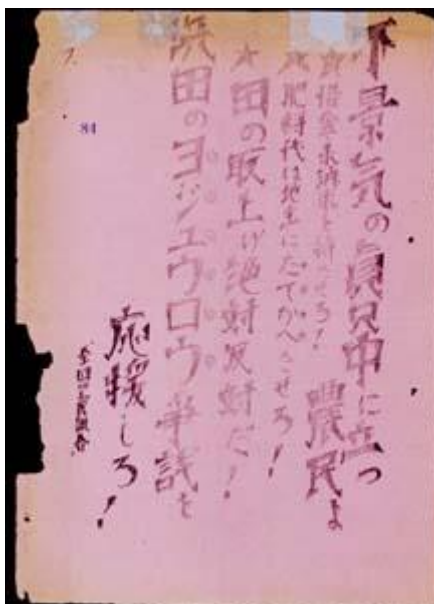 不景気の眞只中に立つ
農民よ
☆借金未納米を せろ!
☆肥料代は地主にたてかへさせろ!
☆田の取上げ絶対反対だ!
浜田のヨジュウロウ争議を
應援しろ!
84